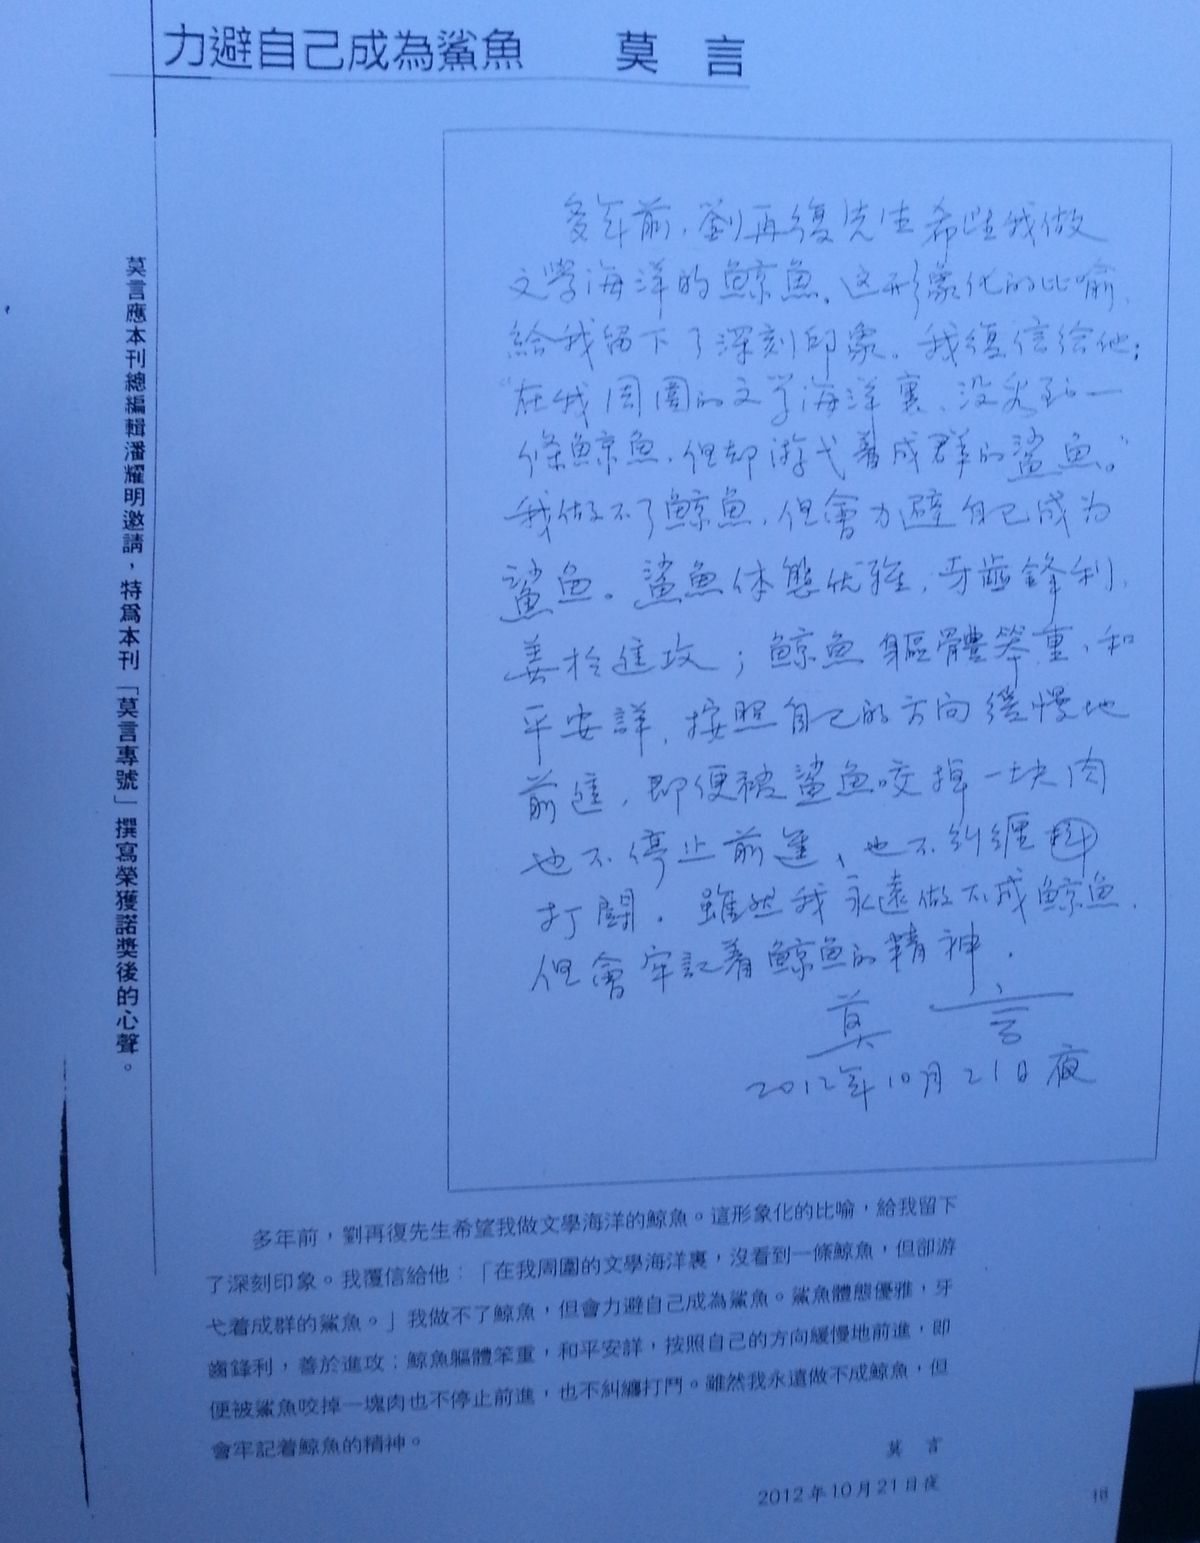 力避自己成為鯊魚　莫　言
莫言應本刊總編輯潘耀明邀請，特爲本刊「莫言專號」撰寫榮獲諾獎後的心聲。
多年前，劉再復先生希望我做
文學海洋的鯨魚。这形象化的比喻，
給我留下了深刻印象。我復信给他：
“在我周圍的文学海洋裏，没看到一
條鯨魚，但却游弋着成群的鯊魚。”
我做不了鯨魚，但會力避自己成为
鯊魚。鯊魚体態优雅，牙齒鋒利，
善於進攻；鯨魚軀體笨重，和
平安詳，按照自己的方向緩慢地
前進，即便被鯊魚咬掉一块肉
也不停止前進，也不糾纏
打鬪。雖然我永遠做不成鯨魚，
但會牢記着鯨魚的精神。
莫言
2012年10月21日夜
多年前，劉再復先生希望我做文學海洋的鯨魚。這形象化的比喻，給我留下
了深刻印象。我覆信給他：「在我周圍的文學海洋裏，沒看到一條鯨魚，但卻游
弋着成群的鯊魚。」我做不了鯨魚，但會力避自己成為鯊魚。鯊魚體態優雅，牙
齒鋒利，善於進攻；鯨魚軀體笨重，和平安詳，按照自己的方向緩慢地前進，即
便被鯊魚咬掉一塊肉也不停止前進，也不糾纏打鬥。雖然我永遠做不成鯨魚，但
會牢記着鯨魚的精神。
莫　言
2012年10月21日夜